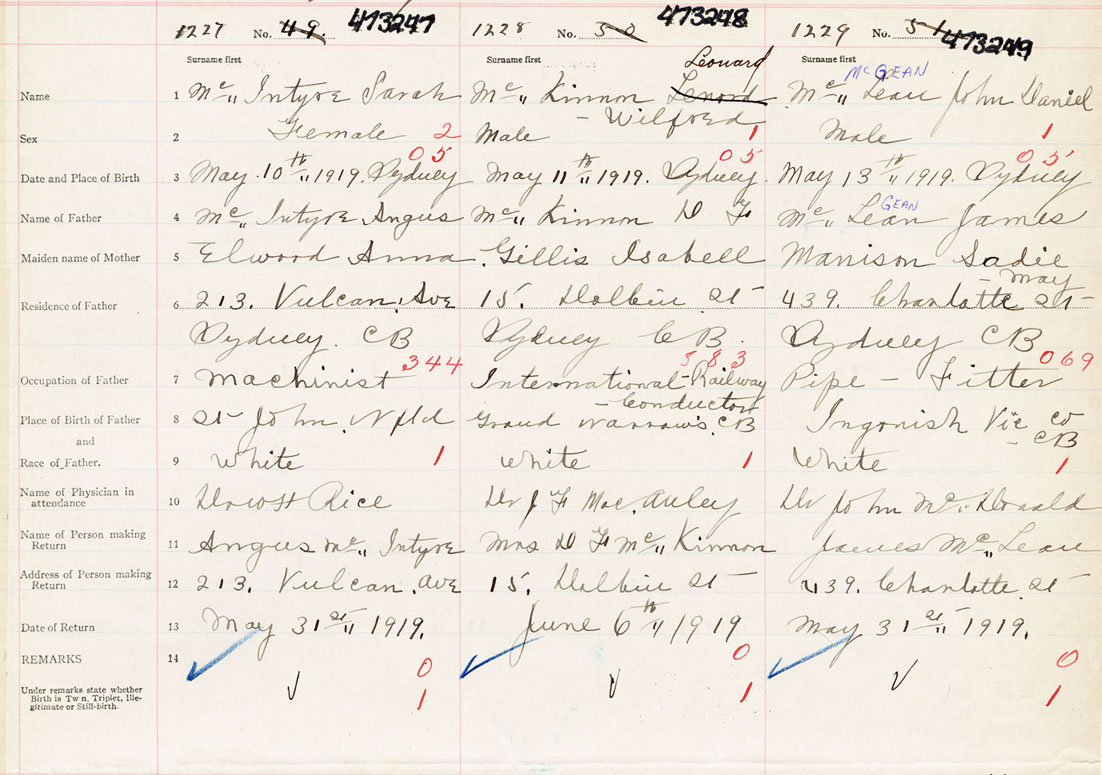 1227 No. 49. 473247 1228 No. 50 473248 1229 No. 51 473249
Surname first Surname first Surname first
Leonard McGEAN
Name 1 Mc„ Intyre Sarah Mc„ Kinnon Lenord Mc„ Lean John Daniel
- Wilfred
Sex 2 Female 2 Male 1 Male 1
05 05 05
Date and Place of Birth 3 May 10th„ 1919. Sydney May 11th„ 1919. Sydney. May 13th„ 1919. Sydney
GEAN
Name of Father 4 Mc„ Intyre Angus Mc„ Kinnon D F Mc„ Lean James
Maiden name of Mother 5 Elwood Anna. Gillis Isabell Manison Sadie
- May
Residence of Father 6 213. Vulcan. Ave 15. Dolbin St 439. Charlotte St
Sydney. CB Sydney CB. Sydney CB
344 583 069
Occupation of Father 7 Machinist International-Railway Pipe - Fitter
- Conductor
Place of Birth of Father 8 St John. Nfld Grand Narrows. CB Ingonish Vic Co
and - CB
Race of Father. 9 White 1 White 1 White 1
Name of Physician in
attendance 10 Rice Dr J F Mac. Auley Dr John Mc„ Donald
Name of Person making
Return 11 Angus Mc„ Intyre Mrs D F Mc„ Kinnon James Mc„ Lean
Address of Person making
Return 12 213. Vulcan. Ave 15. Dolbin St 439. Charlotte. St
Date of Return 13 May 31st„ 1919. June 6th„ 1919 May 31st„ 1919.
REMARKS 14 0 0 0
Under remarks state whether
Birth is Twin, Triplet, Ille-
gitimate or Still-birth. 1 1 1